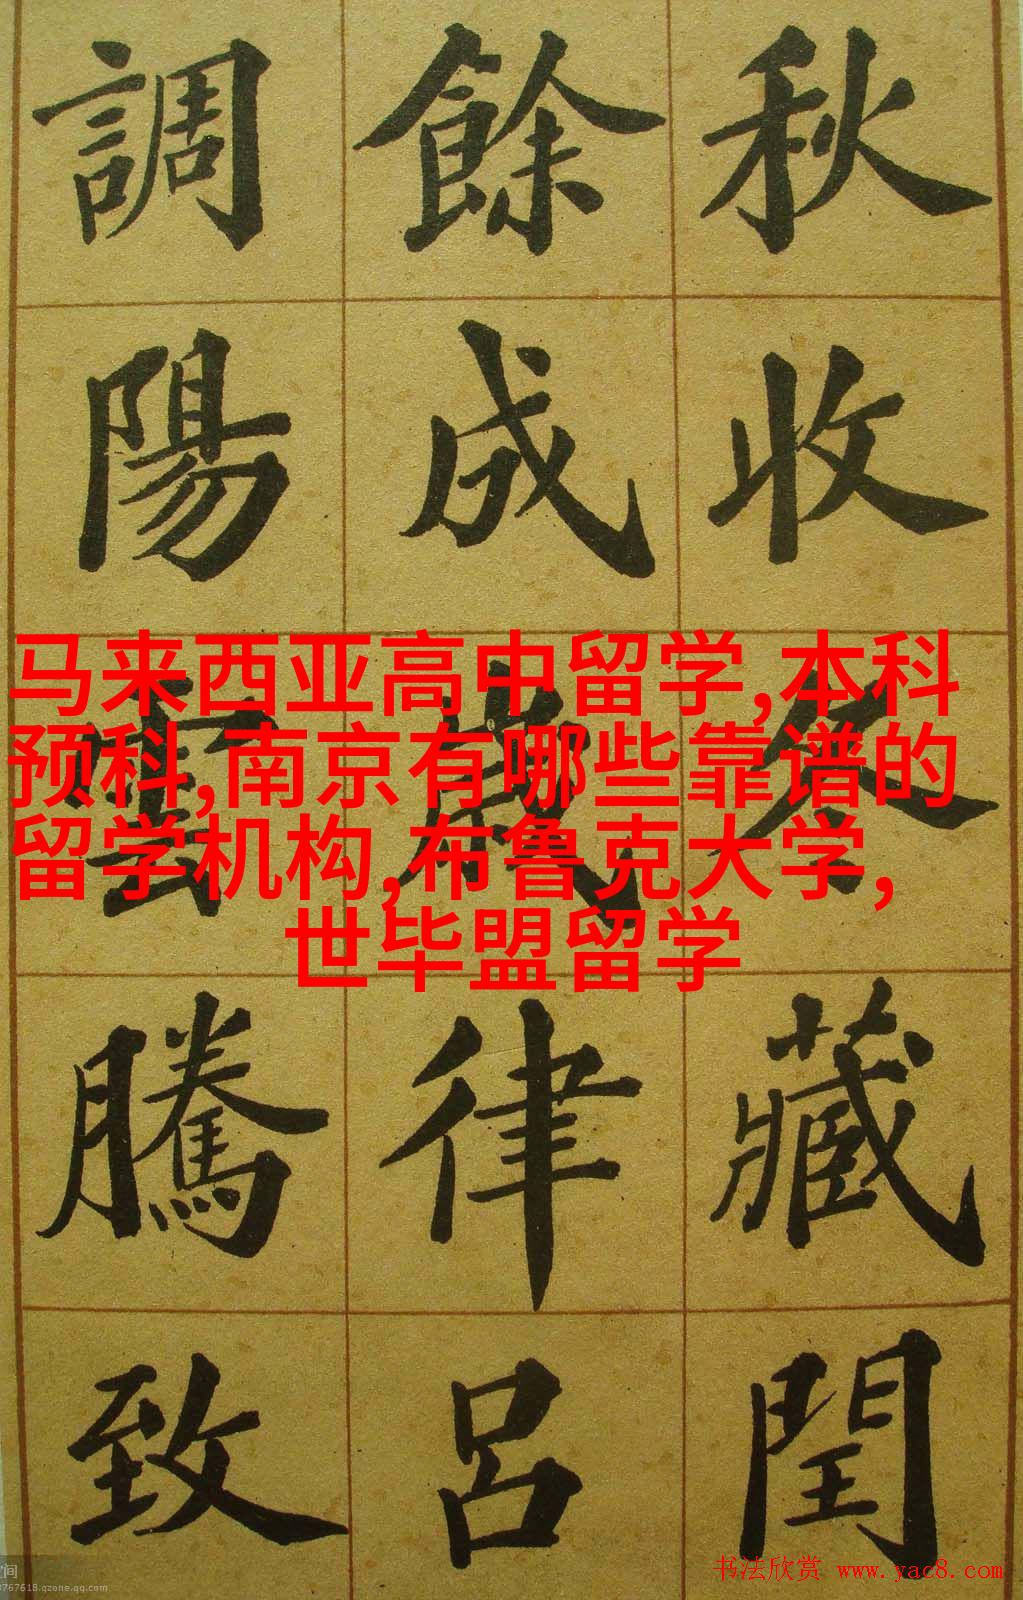 秋收冬藏閏
餘成歲律呂
調陽雲騰致
马来西亚高中留学,本科
预科,南京有哪些靠谱的
留学机构,布鲁克大学,
世毕盟留学
书法欣赏 www.yac8.com
间
767618.qzone.qq.com